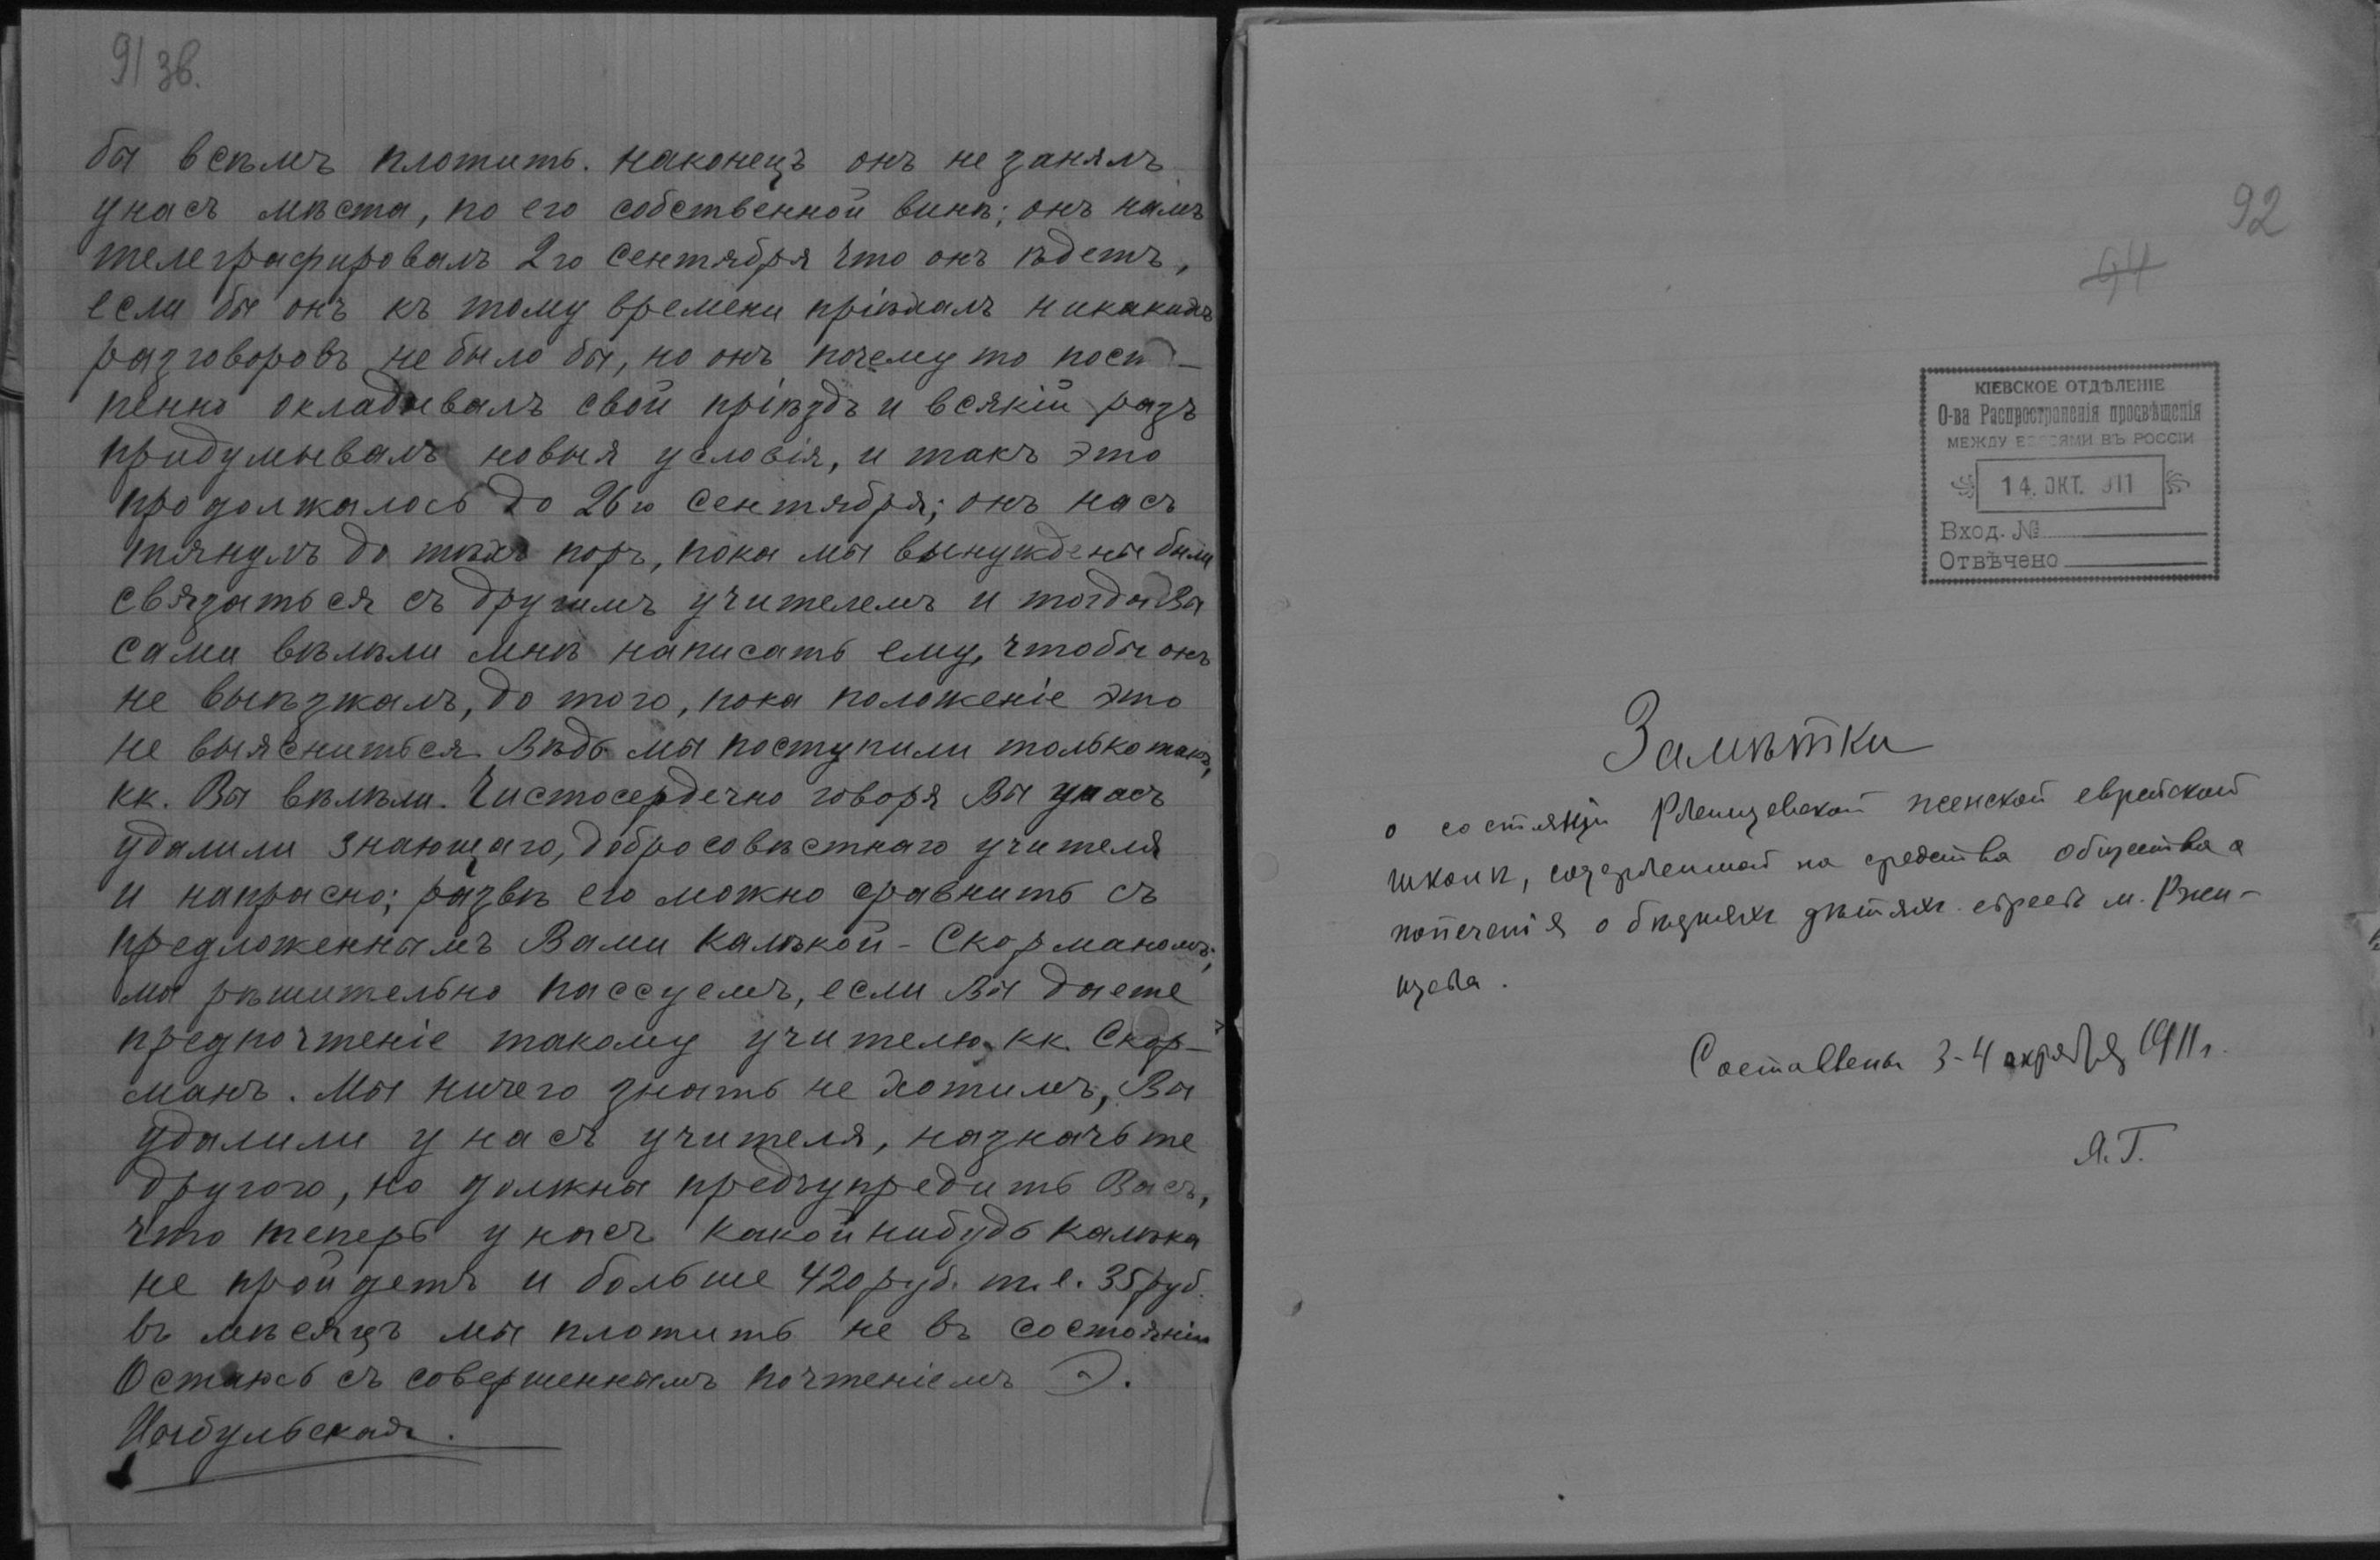 91 зв.
бы всѣмъ плотить. Наконецъ онъ не занялъ
унасъ мѣста, по его собственной винѣ; онъ намъ
телеграфировалъ 2го Сентября что онъ ѣдетъ,
если бы онъ къ тому времени пріѣхалъ никакихъ
разговоровъ не было бы, но онъ почему то посте-
пенно окладывалъ свой пріѣздъ и всякій разъ
придумывалъ новыя условія, и такъ это
продолжалось до 26го Сентября; онъ насъ
тянулъ до тѣхъ поръ, пока мы вынуждены были
связаться съ другимъ учителемъ и тогда Вы
сами вѣлѣли мнѣ написать ему, чтобы онъ
не выѣзжалъ, до того, пока положеніе это
не выясниться. Вѣдь мы поступили только такъ,
кк. Вы вѣлѣли. Чистосердечно говоря Вы унасъ
удалили знающаго, добросовѣстнаго учителя
и напрасно; развѣ его можно сравнить съ
предложеннымъ Вами калѣкой - Скорманомъ;
мы рѣшительно пассуемъ, если Вы даете
предпочтеніе такому учителю кк. Скор-
манъ. Мы ничего знать не хотимъ, Вы
удалили у насъ учителя, назначьте
другого, но должны предъупредить Васъ,
что теперь у насъ какой нибудь калѣка
не пройдетъ и больше 420 руб. т. е. 35 руб.
въ мѣсяцъ мы плотить не въ состояніи
Остаюсь съ совершеннымъ почтеніемъ Э.
Цыбульская.
92
94
КІЕВСКОЕ ОТДѢЛЕНІЕ
О-ва Распространенія просвѣщенія
МЕЖДУ ЕВРЕЯМИ ВЪ РОССІИ
14. ОКТ. 911
Вход. №
Отвѣчено
Замѣтки
о состояніи Ржищевской женской еврейской
школѣ, содержимой на средства Общества
попеченія о бѣдныхъ дѣтяхъ евреевъ м. Ржи-
щева.
Составлены 3-4 октября 1911 г.
Я. Г.